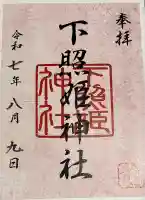 奉拝
下照姫神社
下照姫
神社
令和七年八月九日